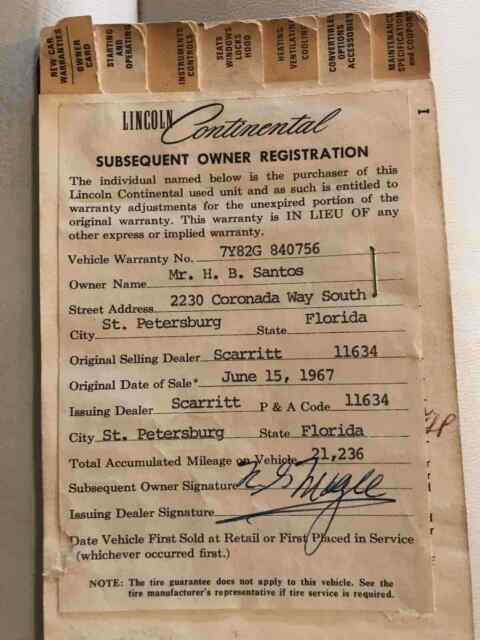 NEW CAR WARRANTIES
OWNER CARD
STARTING AND OPERATING
INSTRUMENTS CONTROLS
SEATS WINDOWS LOCKS HOOD
HEATING VENTILATING COOLING
CONVERTIBLES OPTIONS ACCESSORIES
MAINTENANCE SPECIFICATIONS and COUPONS
LINCOLN Continental
SUBSEQUENT OWNER REGISTRATION
The individual named below is the purchaser of this
Lincoln Continental used unit and as such is entitled to
warranty adjustments for the unexpired portion of the
original warranty. This warranty is IN LIEU OF any
other express or implied warranty.
Vehicle Warranty No. 7Y82G 840756
Owner Name Mr. H. B. Santos
Street Address 2230 Coronada Way South
City St. Petersburg State Florida
Original Selling Dealer Scarritt 11634
Original Date of Sale* June 15, 1967
Issuing Dealer Scarritt P & A Code 11634
City St. Petersburg State Florida
Total Accumulated Mileage on Vehicle 21,236
Subsequent Owner Signature
Issuing Dealer Signature
Date Vehicle First Sold at Retail or First Placed in Service
(whichever occurred first.)
NOTE: The tire guarantee does not apply to this vehicle. See the
tire manufacturer's representative if tire service is required.